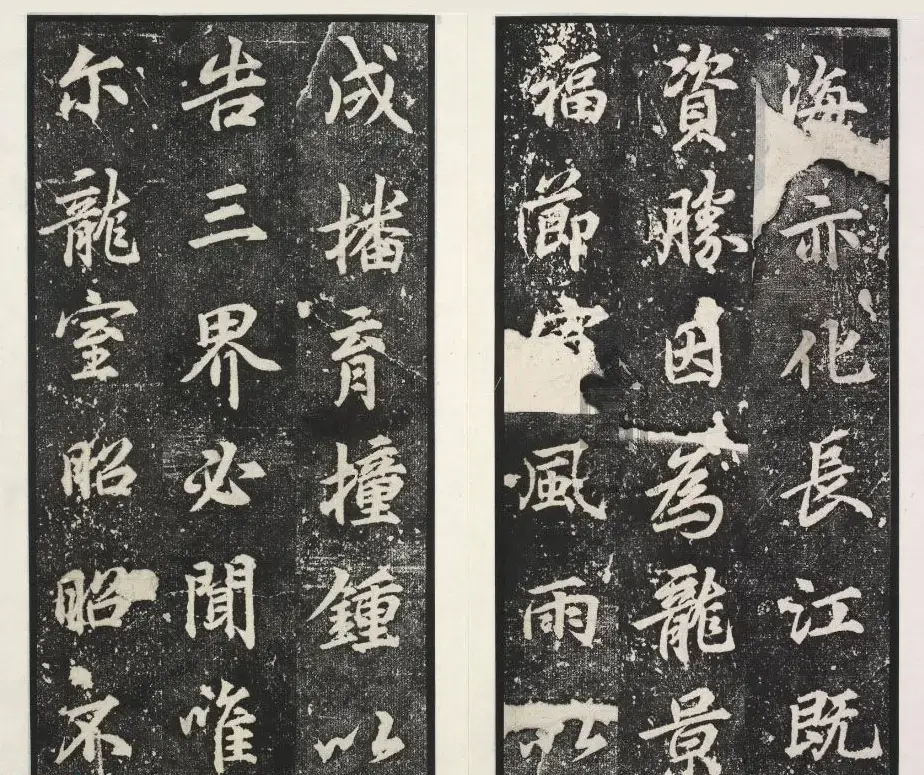 海亦化長江既
資勝因為龍景
福節風雨以
成播育撞鍾以
告三界必聞唯
尔龍室昭昭不